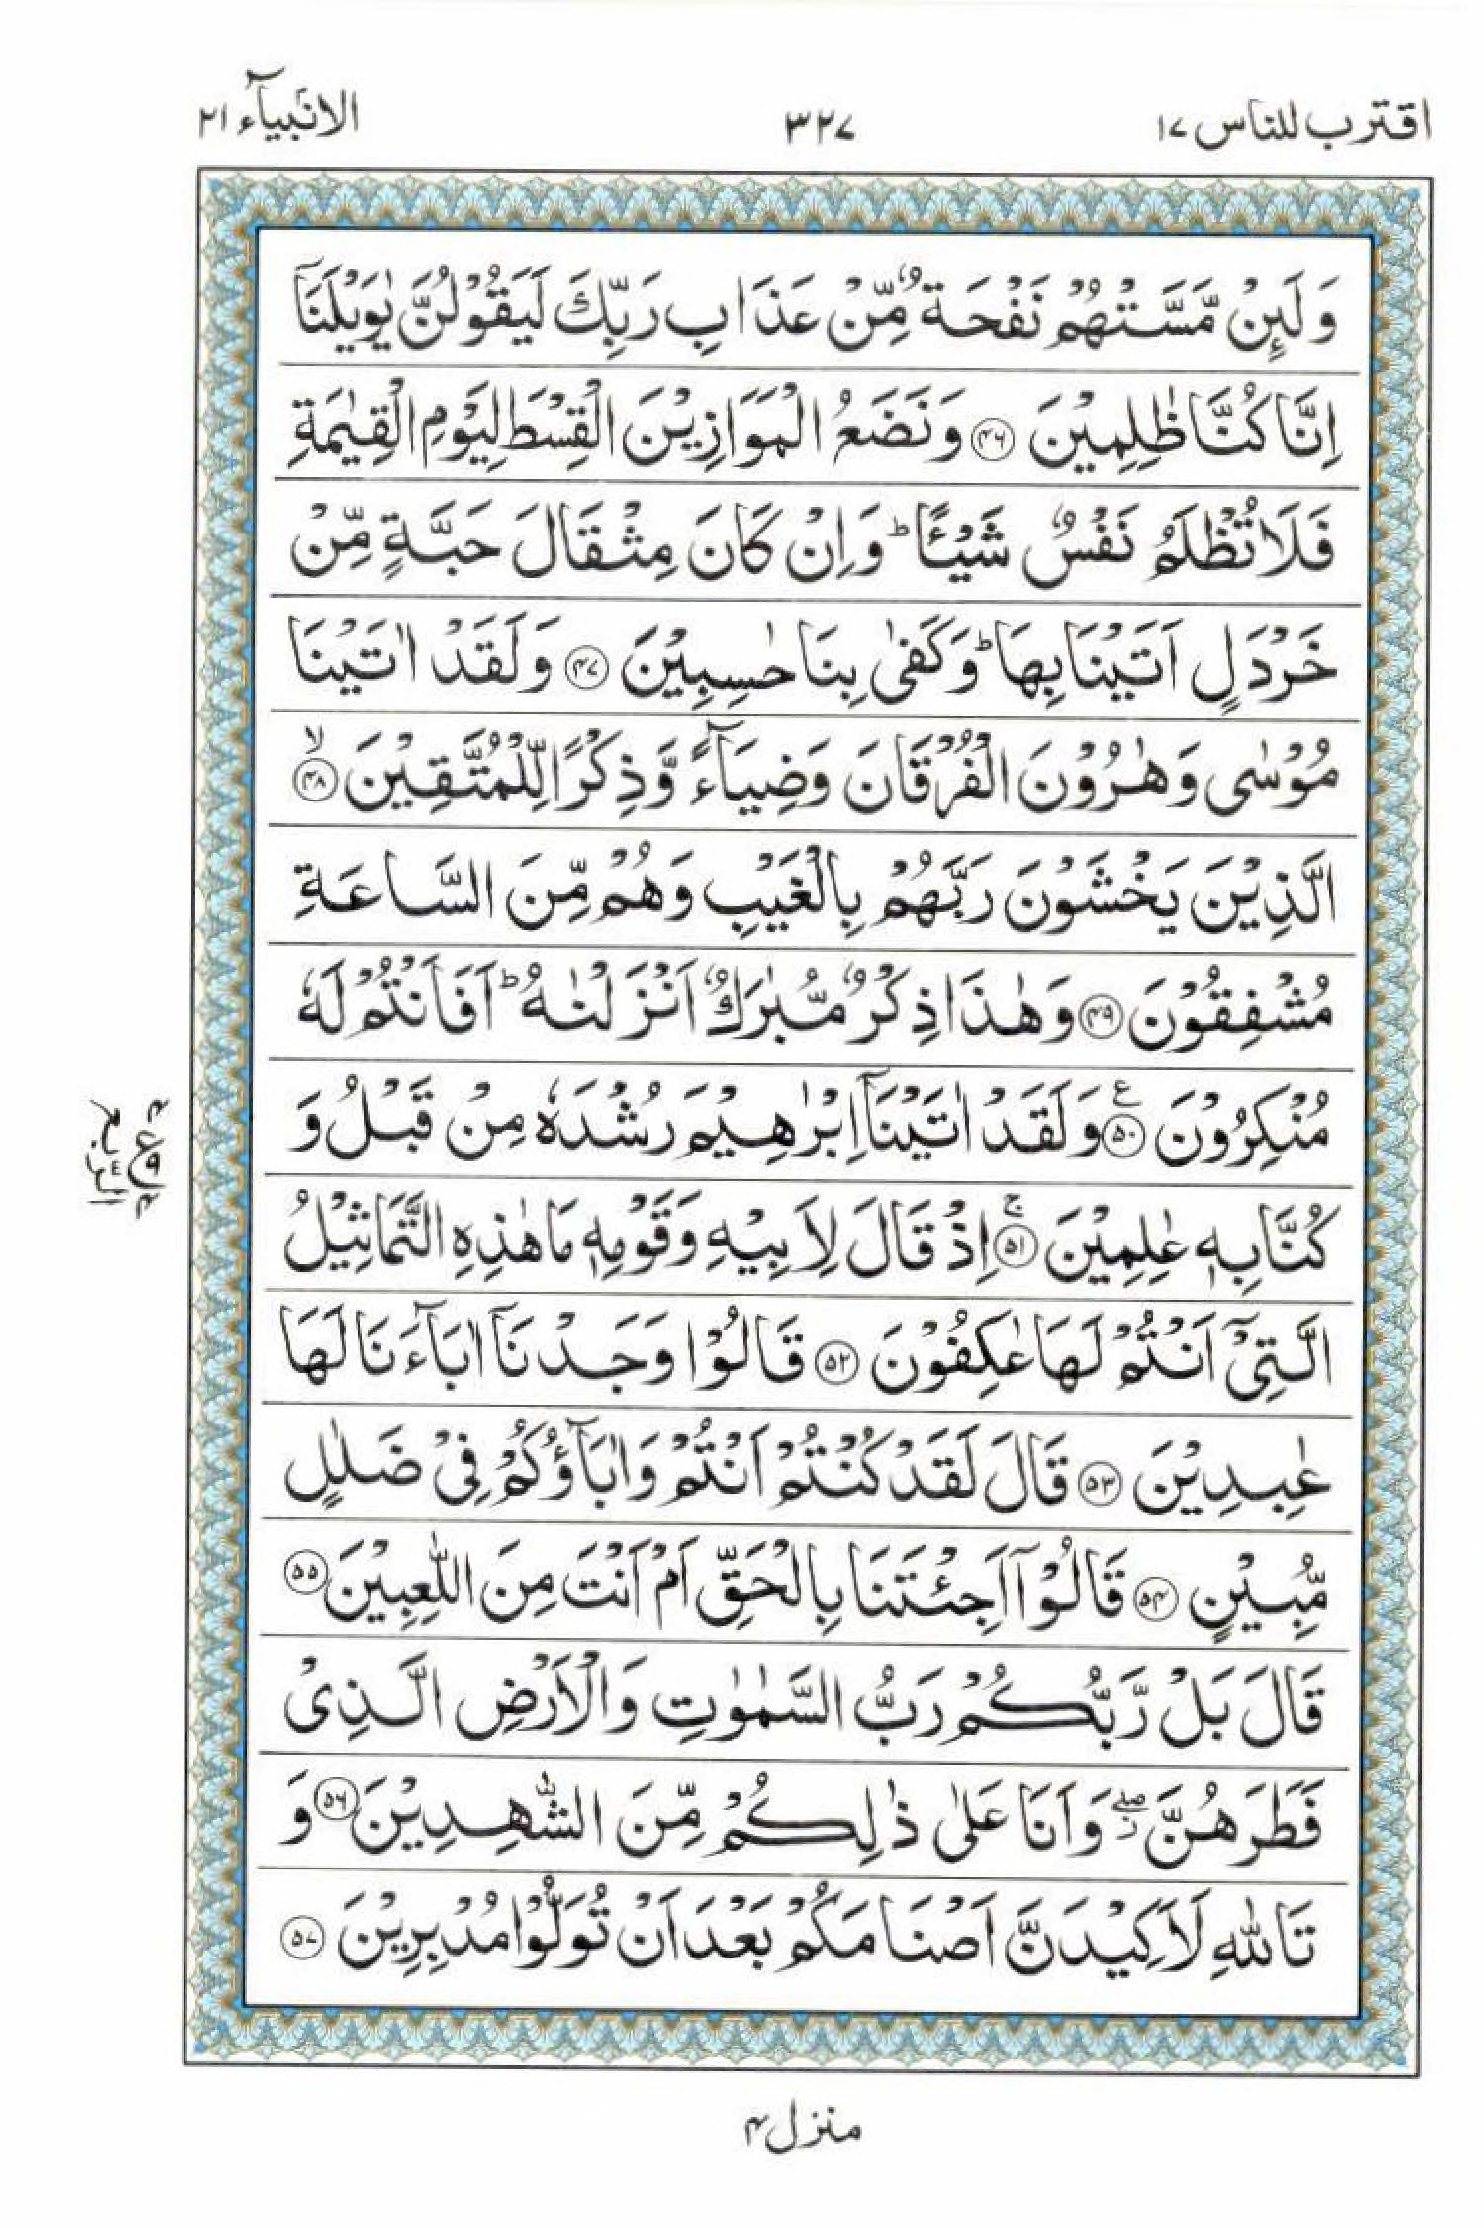 اقترب للناس ١٧
٣٢٧
الانبیآء ٢١
وَلَىِٕنْ مَّسَّتْهُمْ نَفْحَةٌ مِّنْ عَذَابِ رَبِّكَ لَیَقُوْلُنَّ یٰوَیْلَنَاۤ
اِنَّا كُنَّا ظٰلِمِیْنَ ﴿۴۶﴾ وَنَضَعُ الْمَوَازِیْنَ الْقِسْطَ لِیَوْمِ الْقِیٰمَةِ
فَلَا تُظْلَمُ نَفْسٌ شَیْـًٔا ؕ وَاِنْ كَانَ مِثْقَالَ حَبَّةٍ مِّنْ
خَرْدَلٍ اَتَیْنَا بِهَا ؕ وَكَفٰی بِنَا حٰسِبِیْنَ ﴿۴۷﴾ وَلَقَدْ اٰتَیْنَا
مُوْسٰی وَهٰرُوْنَ الْفُرْقَانَ وَضِیَآءً وَّذِكْرًا لِّلْمُتَّقِیْنَ ﴿۴۸﴾ ۙ
الَّذِیْنَ یَخْشَوْنَ رَبَّهُمْ بِالْغَیْبِ وَهُمْ مِّنَ السَّاعَةِ
مُشْفِقُوْنَ ﴿۴۹﴾ وَهٰذَا ذِكْرٌ مُّبٰرَكٌ اَنْزَلْنٰهُ ؕ اَفَاَنْتُمْ لَهٗ
مُنْكِرُوْنَ ﴿۵۰﴾ ع وَلَقَدْ اٰتَیْنَاۤ اِبْرٰهِیْمَ رُشْدَهٗ مِنْ قَبْلُ وَ
كُنَّا بِهٖ عٰلِمِیْنَ ﴿۵۱﴾ ۚ اِذْ قَالَ لِاَبِیْهِ وَقَوْمِهٖ مَا هٰذِهِ التَّمَاثِیْلُ
الَّتِیْۤ اَنْتُمْ لَهَا عٰكِفُوْنَ ﴿۵۲﴾ قَالُوْا وَجَدْنَاۤ اٰبَآءَنَا لَهَا
عٰبِدِیْنَ ﴿۵۳﴾ قَالَ لَقَدْ كُنْتُمْ اَنْتُمْ وَاٰبَآؤُكُمْ فِیْ ضَلٰلٍ
مُّبِیْنٍ ﴿۵۴﴾ قَالُوْۤا اَجِئْتَنَا بِالْحَقِّ اَمْ اَنْتَ مِنَ اللّٰعِبِیْنَ ﴿۵۵﴾
قَالَ بَلْ رَّبُّكُمْ رَبُّ السَّمٰوٰتِ وَالْاَرْضِ الَّذِیْ
فَطَرَهُنَّ ۖؗ وَاَنَا عَلٰی ذٰلِكُمْ مِّنَ الشّٰهِدِیْنَ ﴿۵۶﴾ وَ
تَاللّٰهِ لَاَكِیْدَنَّ اَصْنَامَكُمْ بَعْدَ اَنْ تُوَلُّوْا مُدْبِرِیْنَ ﴿۵۷﴾
الربع
منزل ۴